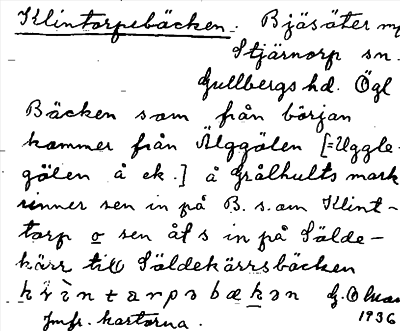 Klintorpebäcken. Bjäsäter
Stjärnorp sn.
Gullbergs hd. Ögl
Bäcken som från början
kommer från Älggölen [=Uggle-
gölen å ek.] å Grålhults mark
rinner sen in på B. s. om Klint-
torp o sen åt s in på Sälde-
kärr till Säldekärrsbäcken
Jmfr. kartorna. 1936